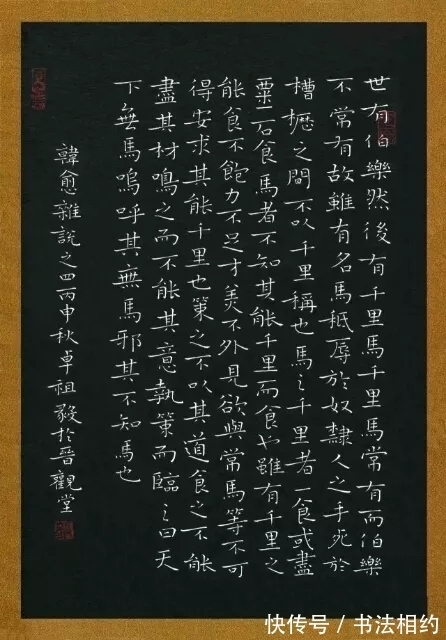 世有伯樂然後有千里馬千里馬常有而伯樂
不常有故雖有名馬秪辱於奴隸人之手死於
槽櫪之間不以千里稱也馬之千里者一食或盡
粟一石食馬者不知其能千里而食也雖有千里之
能食不飽力不足才美不外見欲與常馬等不可
得安求其能千里也策之不以其道食之不能
盡其材鳴之而不能其意執策而臨之曰天
下無馬嗚呼其無馬邪其不知馬也
韓愈雜說之四丙申秋卓祖毅於晉觀堂
快传号 / 书法相约